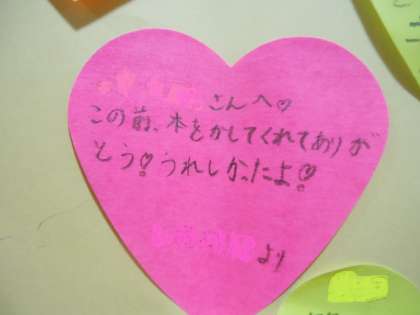 さんへ♡
この前、本をかしてくれてありが
とう!うれしかったよ!
より